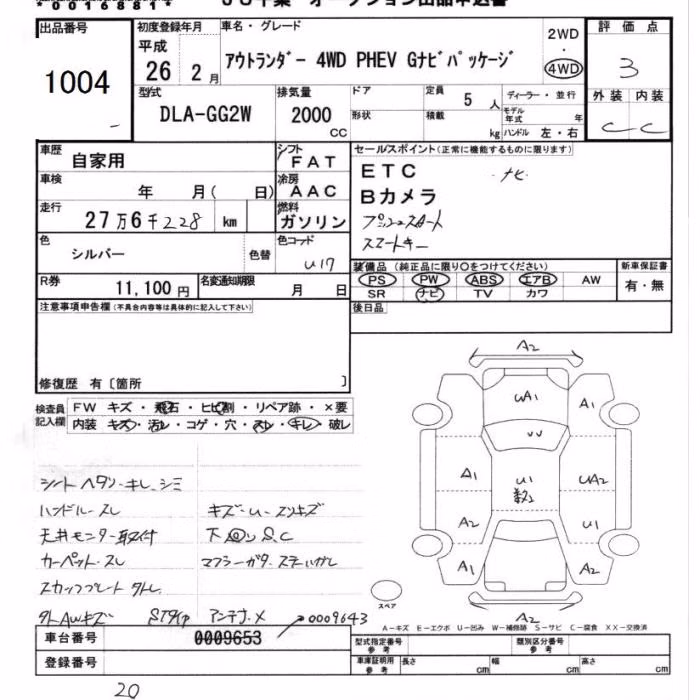 JU千葉 オークション出品申込書
出品番号
1004
初度登録年月
平成
26 2月
車名・グレード
アウトランダー 4WD PHEV Gナビパッケージ
2WD
・
4WD
評価点
3
外装 内装
C C
型式
DLA-GG2W
排気量
2000
CC
ドア
形状
定員 5 人
積載 kg
ディーラー・並行
モデル年式 年
ハンドル 左・右
車歴
自家用
シフト
FAT
車検
年 月( 日)
冷房
AAC
走行
27万6千228 km
燃料
ガソリン
色
シルバー
色替
色コード
U17
R券
11,100円
名変通知期限
月 日
セールスポイント(正常に機能するものに限ります)
ETC ・ナビ
Bカメラ
プッシュスタート
スマートキー
装備品(純正品に限り○をつけてください)
PS PW ABS エアB AW
SR ナビ TV カワ
新車保証書
有・無
後日品
注意事項申告欄(不具合内容等は具体的に記入して下さい)
修復歴 有〔箇所 〕
検査員記入欄
FW キズ・飛石・ヒビ割・リペア跡・×要
内装 キズ・汚レ・コゲ・穴・スレ・キレ・破レ
シートヘタリ・キレ、シミ
ハンドル・スレ
キズ・U・スリキズ
天井モニター取付
下回りS.C
カーペット・スレ
スカッフプレート
外AWキズ
アンテナ・メ
0009643
A2
UA1
A1
A1
VV
A1
U1
UA2
A2
U1
A2
A2
A2
スペア
A－キズ E－エクボ U－凹み W－補修跡 S－サビ C－腐食 XX－交換済
車台番号
0009653
登録番号
型式指定番号
参考
類別区分番号
参考
車庫証明用
参考
長さ cm
幅 cm
高さ cm
20